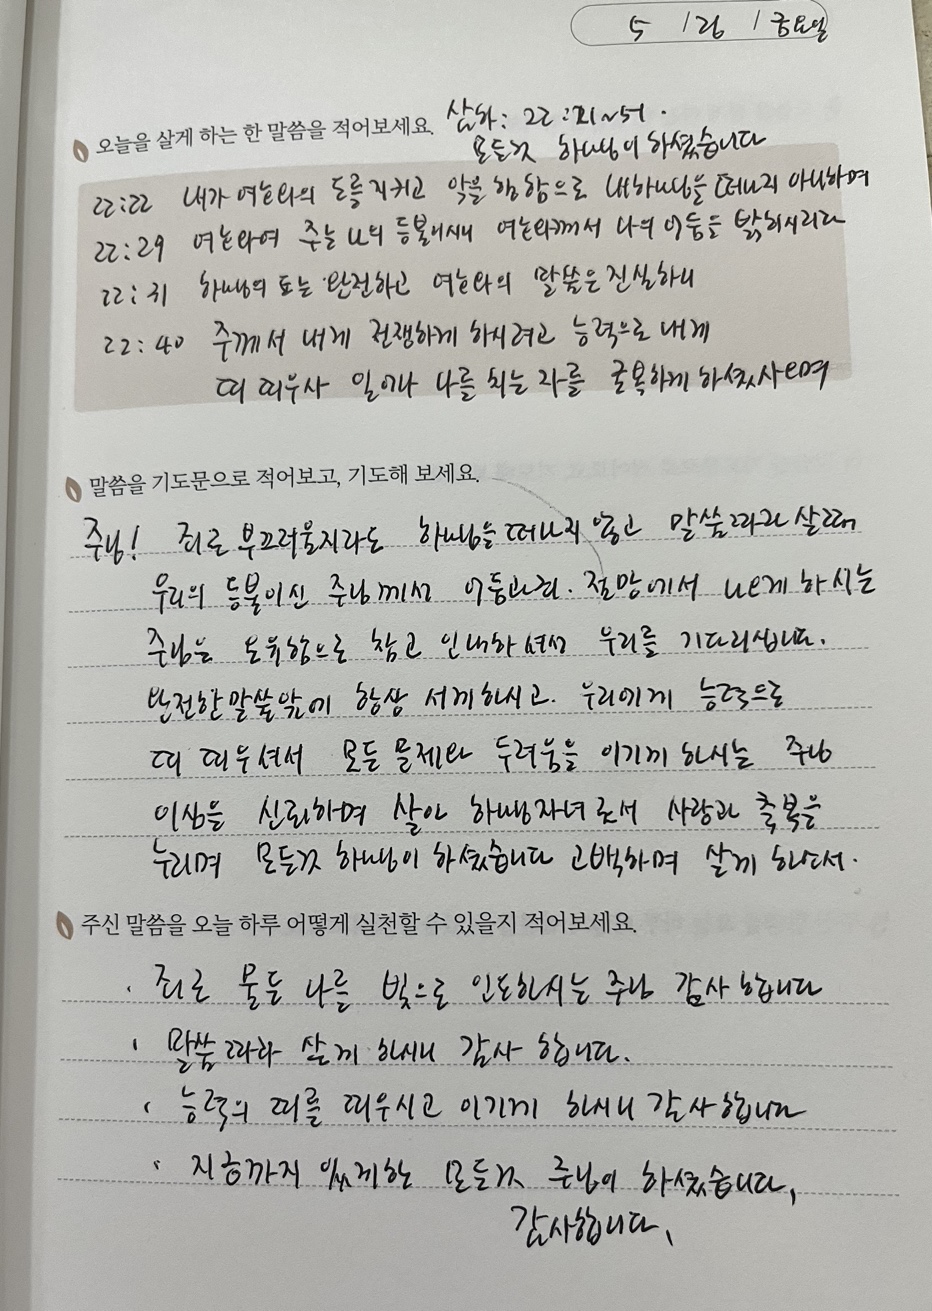 5 / 26 / 금요일
오늘을 살게 하는 한 말씀을 적어보세요. 삼하: 22:21~51.
모든것 하나님이 하셨습니다
22:22 내가 여호와의 도를 지키고 악을 행함으로 내하나님을 떠나지 아니하며
22:29 여호와여 주는 나의 등불이시니 여호와께서 나의 어둠을 밝히시리라
22:31 하나님의 도는 완전하고 여호와의 말씀은 진실하니
22:40 주께서 내게 전쟁하게 하시려고 능력으로 내게
띠 띠우사 일어나 나를 치는 자를 굴복하게 하셨사오며
말씀을 기도문으로 적어보고, 기도해 보세요.
주님! 죄로 부끄러울지라도 하나님을 떠나지 않고 말씀따라 살때
우리의 등불이신 주님께서 어둠과죄. 절망에서 나오게 하시는
주님은 온유함으로 참고 인내하셔서 우리를 기다리십니다.
완전한말씀앞에 항상 서게하시고. 우리에게 능력으로
띠 띠우셔서 모든 문제와 두려움을 이기게 하시는 주님
이심을 신뢰하며 살아 하나님자녀로서 사랑과 축복을
누리며 모든것 하나님이 하셨습니다 고백하며 살게 하소서.
주신 말씀을 오늘 하루 어떻게 실천할 수 있을지 적어보세요.
· 죄로 물든 나를 빛으로 인도하시는 주님 감사 합니다
· 말씀 따라 살게 하시니 감사 합니다.
· 능력의 띠를 띠우시고 이기게 하시니 감사합니다
· 지금까지 있게한 모든것 주님이 하셨습니다,
감사합니다,